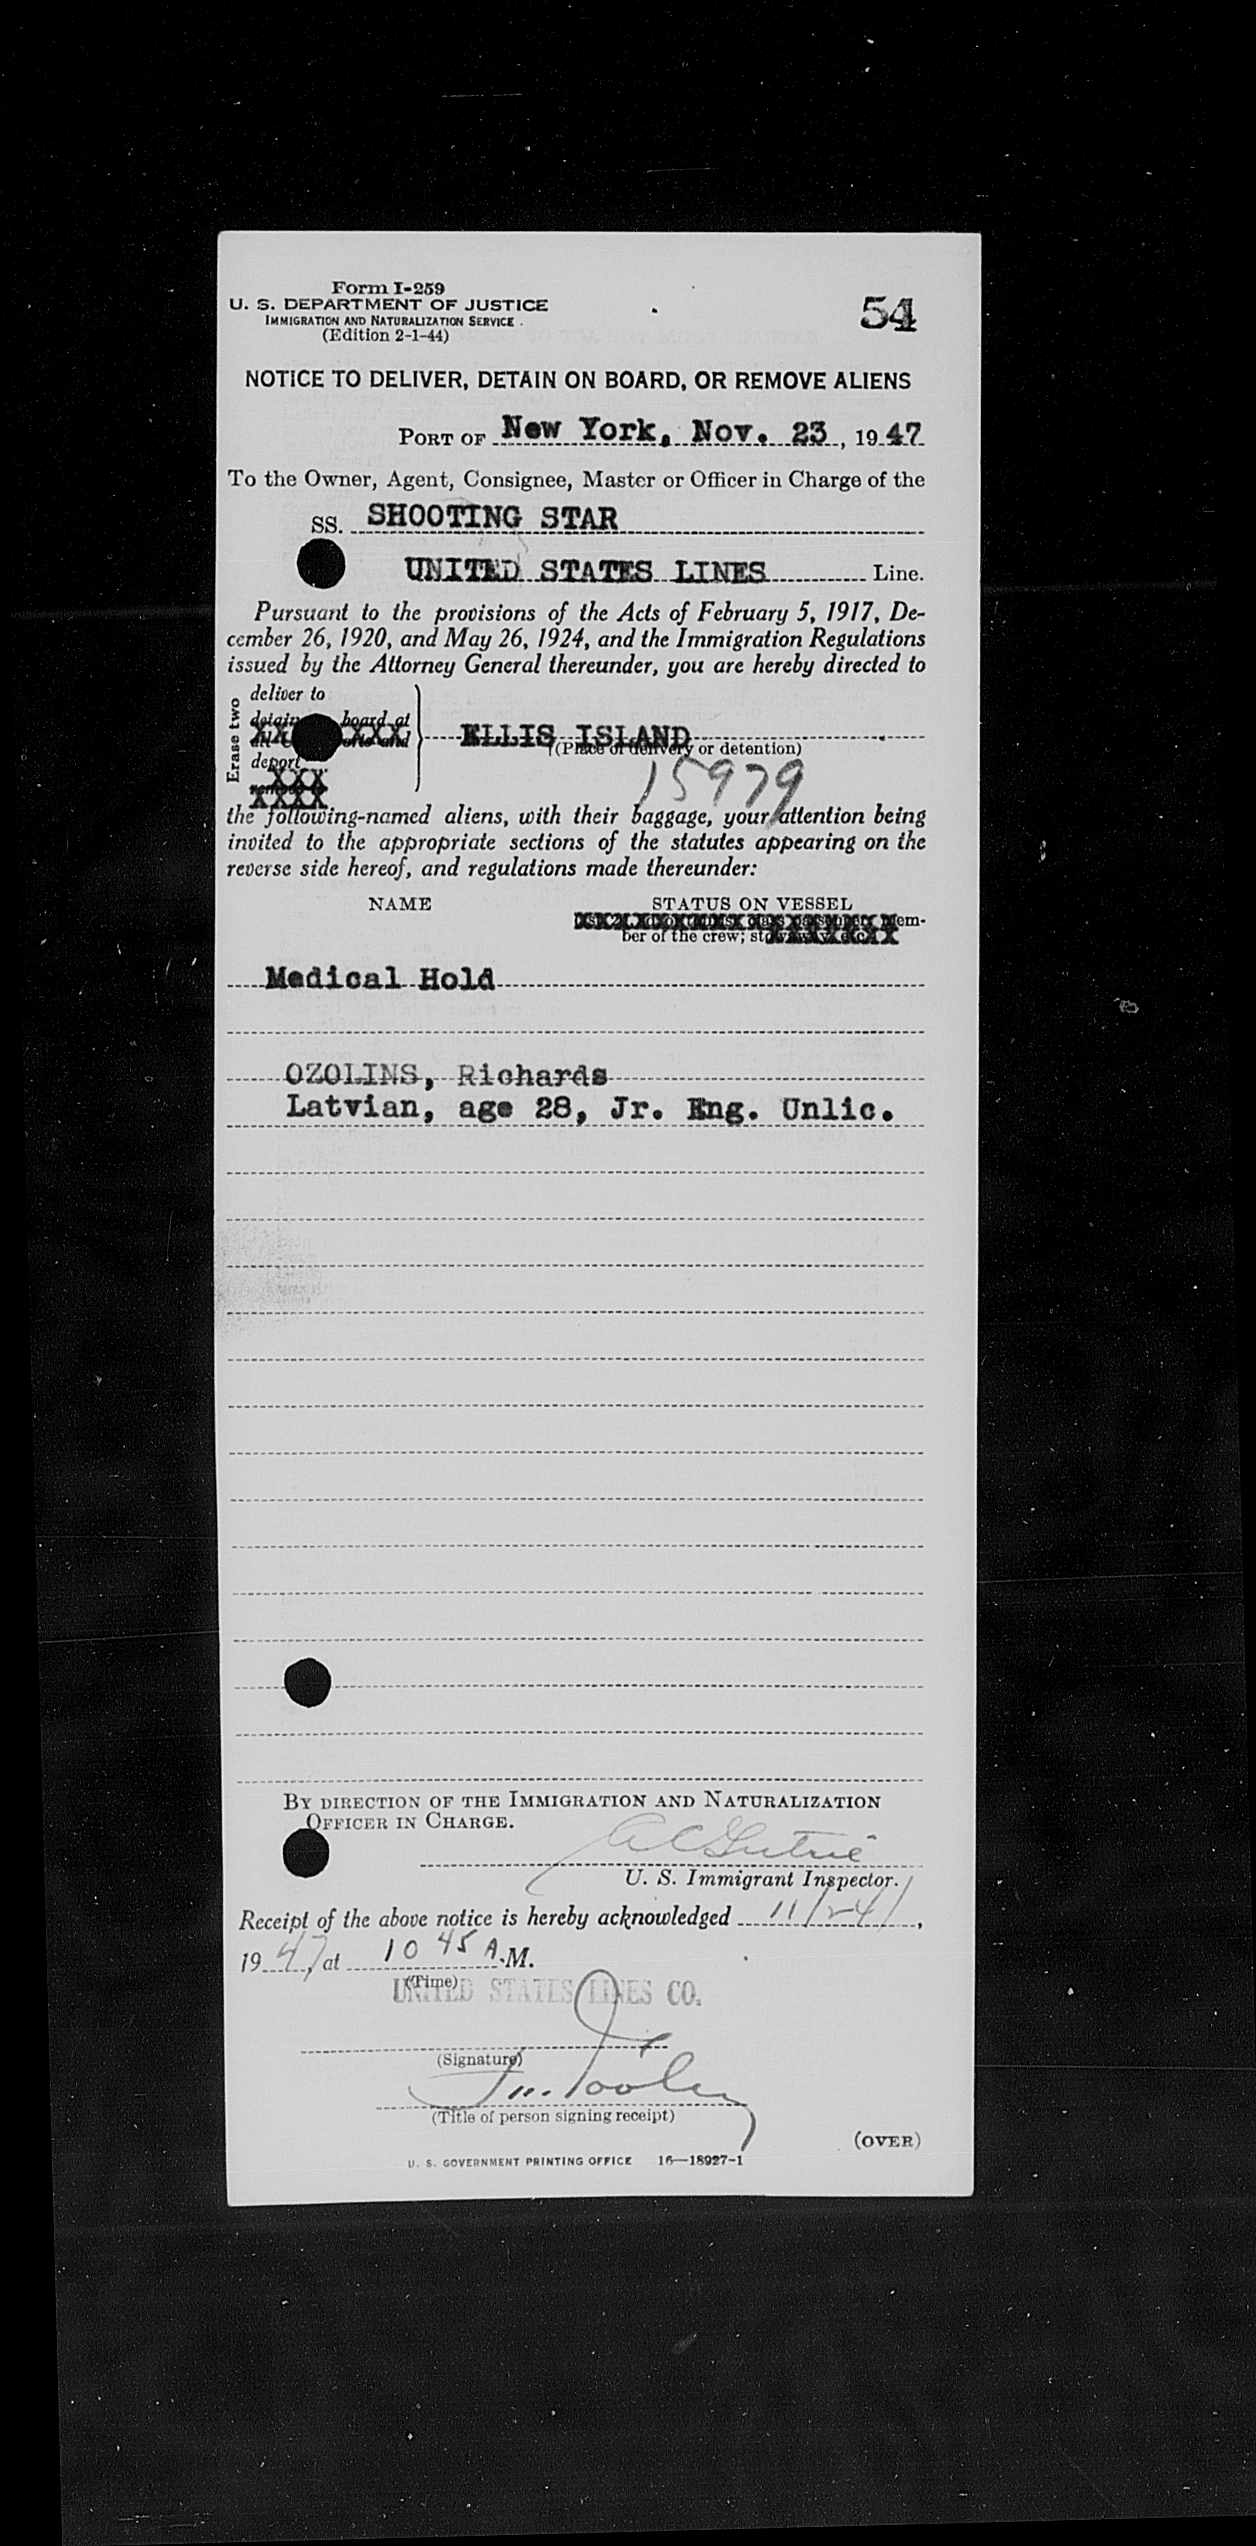 Form I-259
U. S. DEPARTMENT OF JUSTICE
IMMIGRATION AND NATURALIZATION SERVICE
(Edition 2-1-44)
54
NOTICE TO DELIVER, DETAIN ON BOARD, OR REMOVE ALIENS
PORT OF New York, Nov. 23, 1947
To the Owner, Agent, Consignee, Master or Officer in Charge of the
SS. SHOOTING STAR
UNITED STATES LINES Line.
Pursuant to the provisions of the Acts of February 5, 1917, De-
cember 26, 1920, and May 26, 1924, and the Immigration Regulations
issued by the Attorney General thereunder, you are hereby directed to
Erase two
deliver to
board at
deport
ELLIS ISLAND
(Place of delivery or detention)
15979
the following-named aliens, with their baggage, your attention being
invited to the appropriate sections of the statutes appearing on the
reverse side hereof, and regulations made thereunder:
NAME STATUS ON VESSEL
Mem-
ber of the crew;
Medical Hold
OZOLINS, Richards
Latvian, age 28, Jr. Eng. Unlic.
BY DIRECTION OF THE IMMIGRATION AND NATURALIZATION
OFFICER IN CHARGE.
U. S. Immigrant Inspector.
Receipt of the above notice is hereby acknowledged 11/24/,
1947, at 10 45 A.M.
(Time)
UNITED STATES LINES CO.
(Signature)
(Title of person signing receipt)
(OVER)
U. S. GOVERNMENT PRINTING OFFICE 16—18927-1